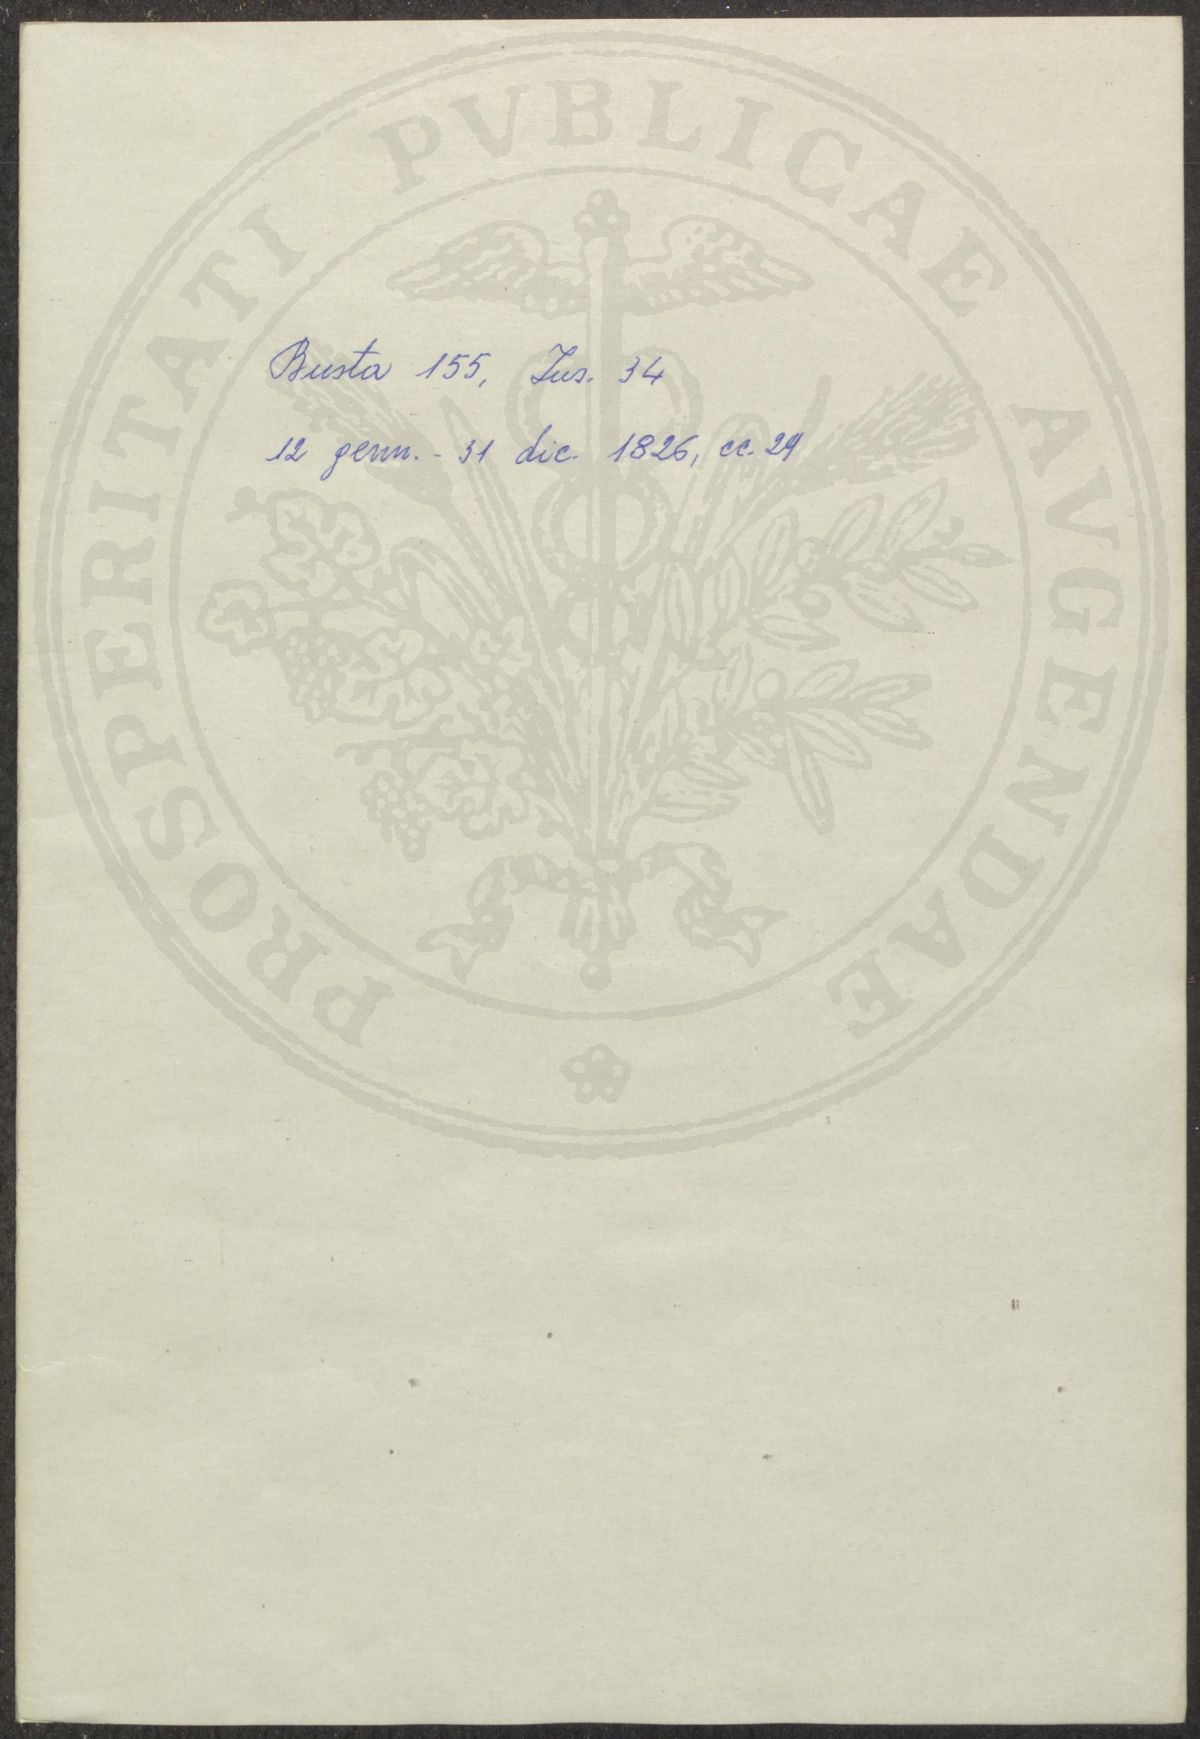 PROSPERITATI PVBLICAE AVGENDAE
Busta 155, Ins. 34
12 genn. - 31 dic. 1826, cc. 29